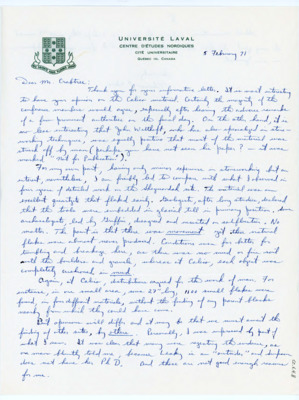 UNIVERSITÉ LAVAL
CENTRE D'ÉTUDES NORDIQUES
CITÉ UNIVERSITAIRE
QUÉBEC 10, CANADA
5 February 71
Dear Mr. Crabtree:
Thank you for your informative letter. It is most interesting
to have your opinion on the Calico material. Certainly the majority of the
conference members would agree, especially after hearing the adverse remarks
of a few prominent authorities on the final day. On the other hand, it is
no less interesting that John Witthoft, who has also specialized in stone
working techniques, was equally positive that most of the material was
struck off by man (perhaps you have not seen his paper? — it was
marked "Not for Publication").
For my own part, having only minor experience in stoneworking but an
interest, nevertheless, I am finally led to compare with what I learned in
four years of detailed work in the Sheguiandah site. The material was an
excellent quartzite that flaked easily. Geologists, after long studies, declared
that the tools were embedded in glacial till in primary position. Some
archaeologists, led by Griffin, disagreed and insisted on solifluction. No
matter. The point is that there was movement yet this natural
flakes were almost never produced. Conditions were far better for
tumbling and shocking here, as there was no mud or fine sand
with the boulders and gravels, whereas at Calico, each object was
completely enclosed in mud.
Again, at Calico, distributions argued for the work of man. For
instance, in one small area, over 27 sq., 400 small flakes were
found, in five different materials, without the finding of any parent blocks
nearby from which they could have come.
But opinions will differ and it may be that we must await the
finding of other sites, by others. Personally, I was impressed by part of
what I saw. It was clear that many were rejecting the evidence, as
one man bluntly told me, because Leakey is an "outsider" and Simpson
does not have her Ph.D. And these are not good enough reasons
for me.